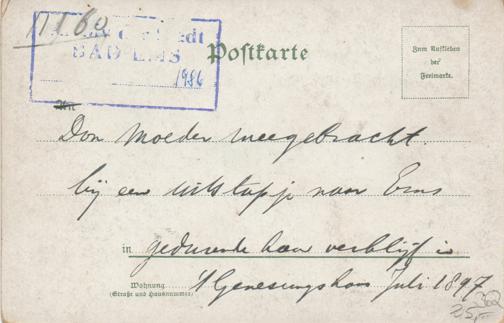 II f 60
der Stadt
BAD EMS
1986
Postkarte
Zum Aufkleben
der
Freimarke.
An
Door Moeder meegebracht
bij een uitstapje naar Ems
in gedurende haar verblijf in
Wohnung
(Straße und Hausnummer)
't Genesungshaus Juli 1897
362
25,-